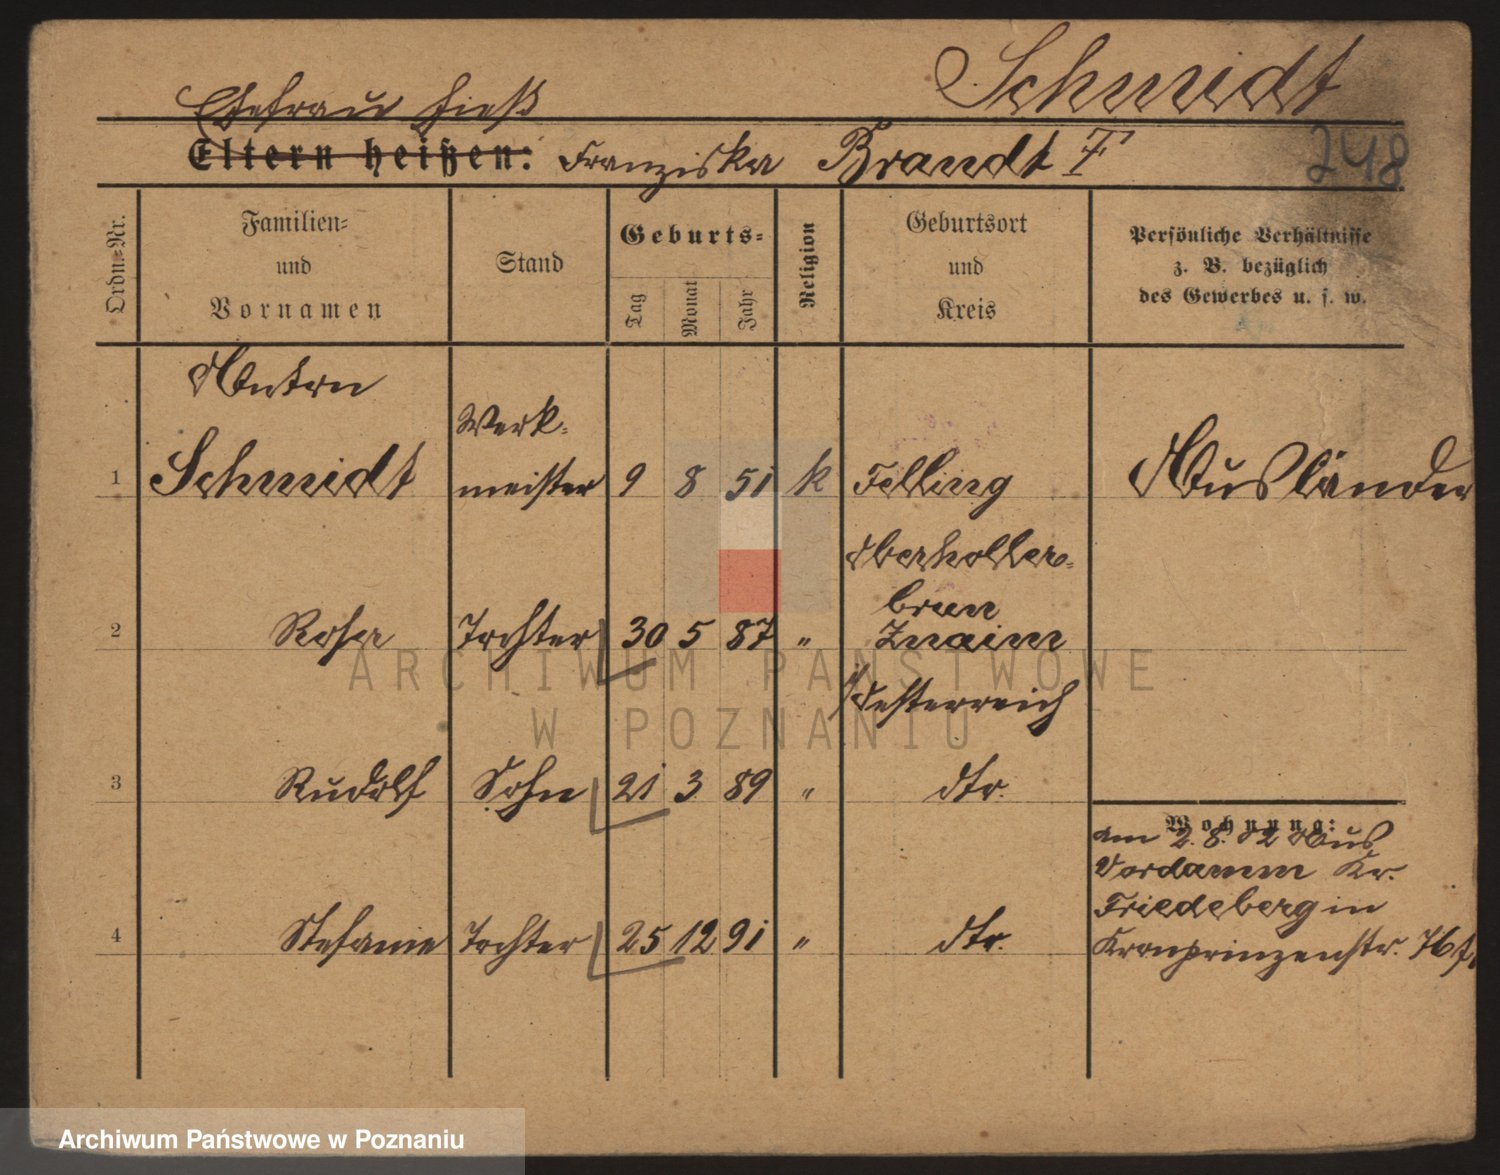 Schmidt
Ehefrau hieß
Eltern heißen: Franziska Brandt †
248
Ordn.-Nr.
Familien-
und
Vornamen
Stand
Geburts-
Tag
Monat
Jahr
Religion
Geburtsort
und
Kreis
Persönliche Verhältnisse
z. B. bezüglich
des Gewerbes u. s. w.
Anton
Werk-
1 Schmidt meister 9 8 51 k Felling Ausländer
Oberholler-
brun
2 Rosa Tochter 30 5 87 " Znaim
i/Oesterreich
3 Rudolf Sohn 21 3 89 " dto.
Wohnung:
am 2.8.02 aus
Vordamm Kr.
Friedeberg in
4 Stefanie Tochter 25 12 91 " dto. Kronprinzenstr. 76
ARCHIWUM PAŃSTWOWE
W POZNANIU
Archiwum Państwowe w Poznaniu